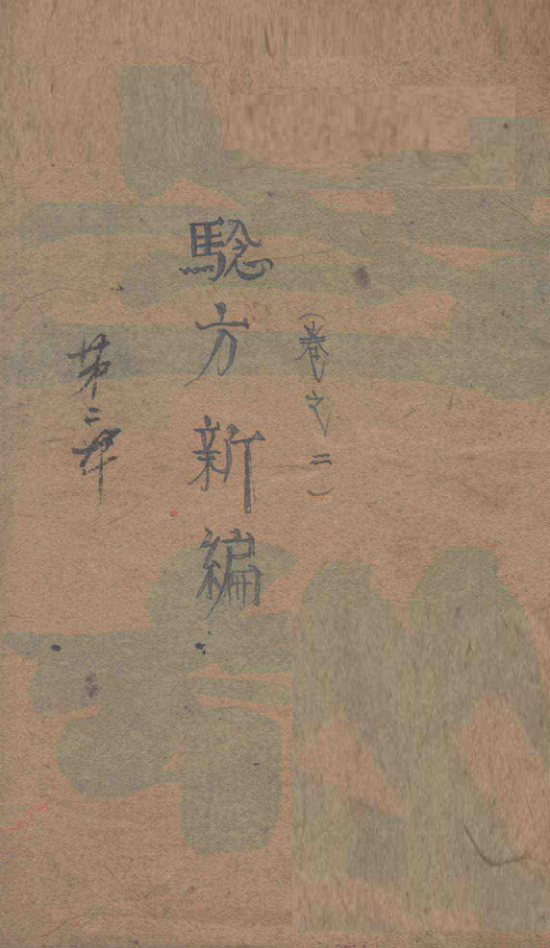 (卷之二)
騐方新編
第二本